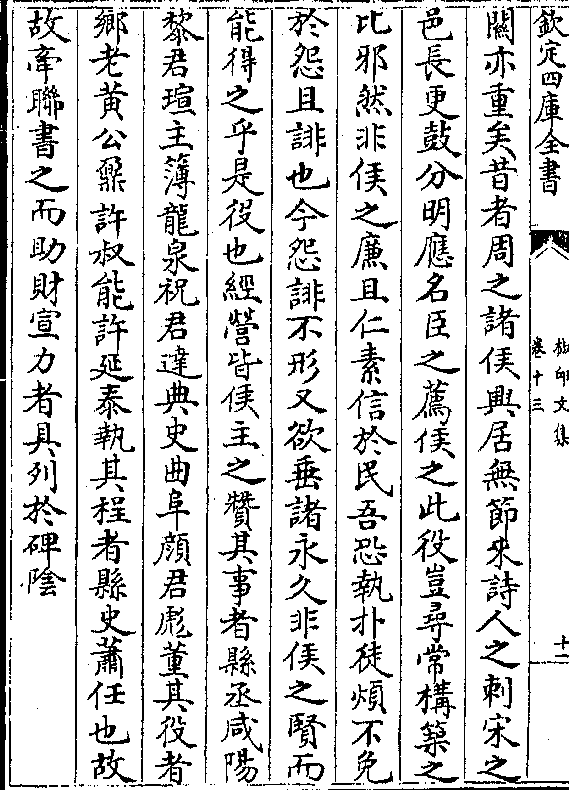 欽定四庫全書
卷十三
十一
關亦重矣昔者周之諸侯興居無節來詩人之刺宋之
邑長更鼓分明應名臣之薦侯之此役豈尋常構築之
比邪然非侯之廉且仁素信於民吾恐執扑徒煩不免
於怨且誹也今怨誹不形又欲垂諸永久非侯之賢而
能得之乎是役也經營皆侯主之贊其事者縣丞咸陽
黎君瑄主簿龍泉祝君達典史曲阜顏君彪董其役者
鄉老黄公鼏許叔能許延泰執其程者縣史蕭任也故
故牽聯書之而助財宣力者具列於碑陰